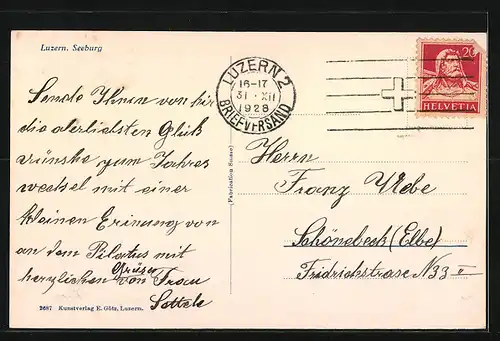 Luzern. Seeburg
LUZERN 2
16-17
31 · XII
1928
BRIEFVERSAND
20
HELVETIA
Sende Ihnen von hir
die alerliebsten Glük
wünske zum Jahres
wechsel mit einer
kleinen Erinung von
an dem Pilatus mit
Grüsen
herzlichen von Frau
Settele
Herrn
Franz Uebe
Schönebeck (Elbe)
Fridrichstrase N 33 II
(Fabrication Suisse)
2687 Kunstverlag E. Götz, Luzern.